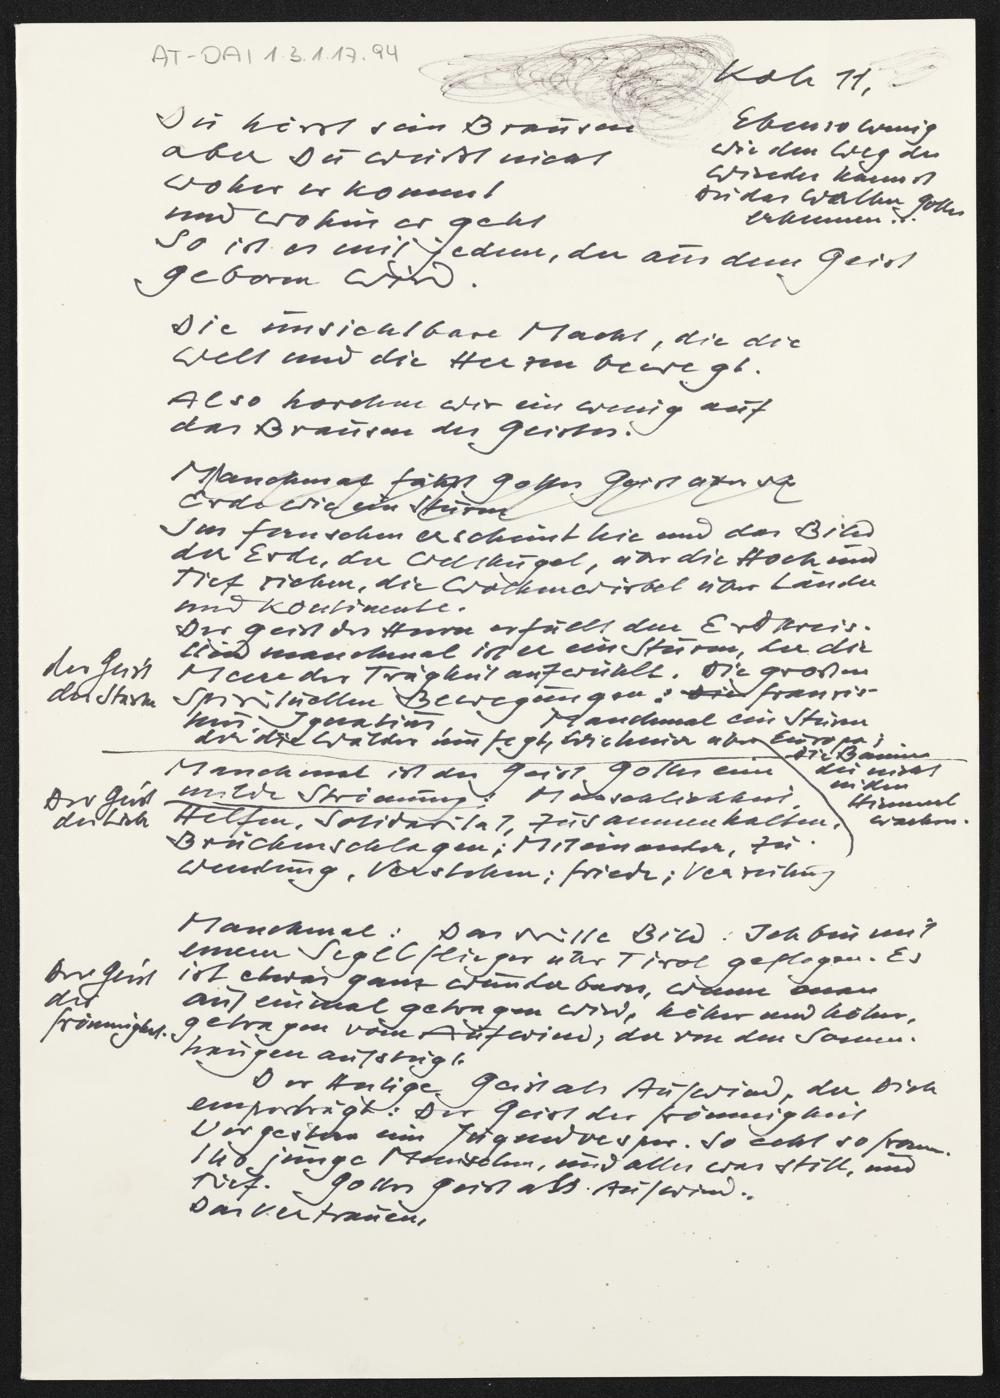 AT-DAI 1.3.1.17.94
Koh 11,
Ebenso wenig
wie den Weg des
Windes kannst
Du das Walten Gottes
erkennen...
Du hörst sein Brausen
aber Du weißt nicht
woher er kommt
und wohin er geht
So ist es mit jedem, der aus dem Geist
geboren wird.
Die unsichtbare Macht, die die
Welt und die Herzen bewegt.
Also horchen wir ein wenig auf
das Brausen des Geistes.
Manchmal fährt Gottes Geist über die
Erde wie ein Sturm
Im Fernsehen erscheint hie und da das Bild
der Erde, der Weltkugel, über die Hoch und
Tief ziehen, die Wolkenwirbel über Länder
und Kontinente.
Der Geist des Herrn erfüllt den Erdkreis.
Und manchmal ist er ein Sturm, der die
der Geist
der Stärke
Meere der Trägheit aufwühlt. Die großen
Spirituellen Bewegungen: Die Franzis-
kus, Ignatius, Manchmal ein Sturm
der die Wälder umfegt, wie heuer über Europa;
die Bäume
die nicht
in den
Himmel
wachsen.
Manchmal ist der Geist Gottes eine
Der Geist
der Liebe
milde Strömung: Menschlichkeit,
Helfen, Solidarität, Zusammenhalten,
Brückenschlagen; Miteinander, Zu-
wendung, Verstehen; Friede; Verzeihung
Manchmal: Das stille Bild: Ich bin mit
einem Segelflieger über Tirol geflogen. Es
Der Geist
der
Frömmigkeit.
ist etwas ganz wunderbares, wenn man
auf einmal getragen wird, höher und höher,
getragen vom Aufwind, der von den Sonnen-
hängen aufsteigt.
Der Heilige Geist als Aufwind, der Dich
emporträgt: Der Geist der Frömmigkeit
Vorgestern ein Jugendvesper. So echt so fromm.
140 junge Menschen, und alles war still, und
tief. Gottes Geist als Aufwind.
Das Vertrauen,